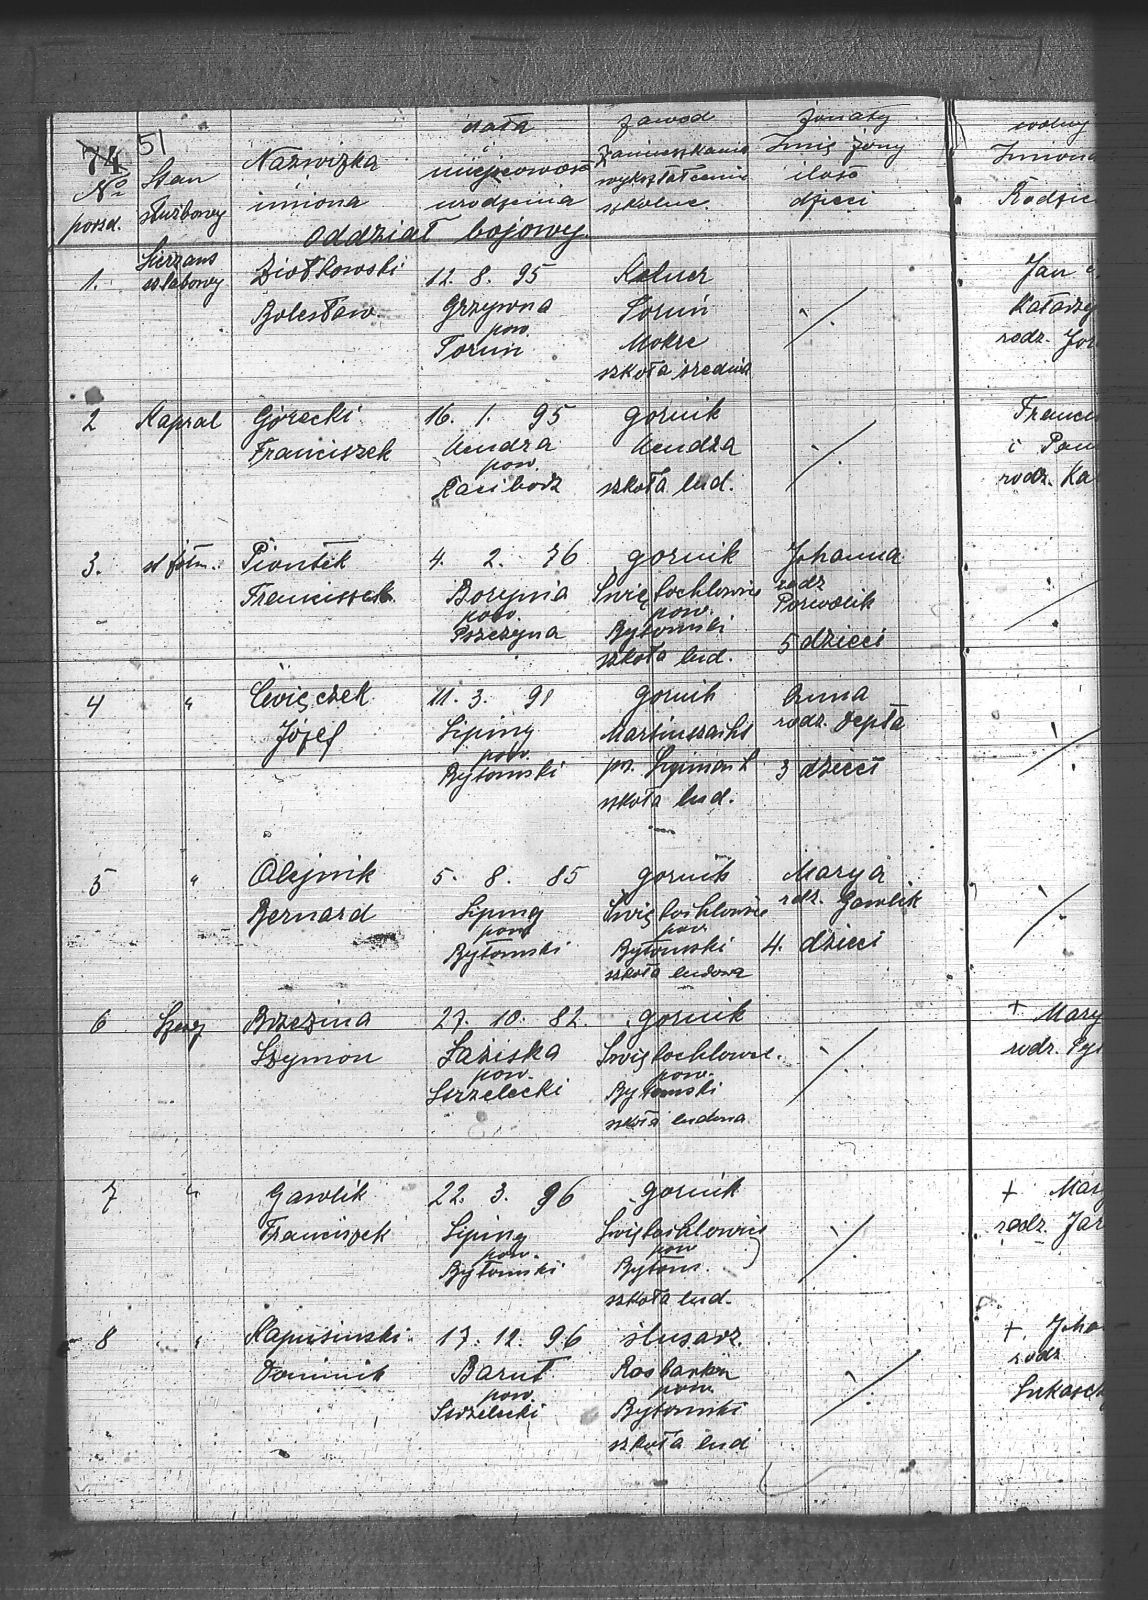 74 51
No porząd.
Stan służbowy
Nazwizka imiona
data i miejscowość urodzenia
Zawod Zamieszkanie wykształcenie szkolne
Żonaty Imię żony ilość dzieci
wolny Imiona Rodzic
oddział bojowy.
1. Sierzans sztabowy
Ziołkowski Bolesław.
12. 8. 95
Grzywna
pow.
Toruń
Kelner
Toruń
Mokre
szkoła średnia
Jan
Katarzy
rodz.
2 Kapral
Górecki
Franciszek
16. 1. 95
Nendza
pow.
Racibosz
gornik
Nendza
szkoła lud.
Franci
i
rodz. Ka
3. st. żołn.
Piontek
Franciszek
4. 2. 76
Borynia
pow.
Pszczyna
gornik
Święlochlowice
pow.
Bytomski
szkoła lud.
Johanna
rodz
Porwolik
5 dzieci
4 "
Ćwięczek
Józef
11. 3. 91
Lipiny
pow.
Bytomski
gornik
szkoła lud.
Anna
rodz. Depta
3 dzieci
5 "
Olejnik
Bernard
5. 8. 85
Lipiny
pow
Bytomski
gornik
Święlochlowice
pow.
Bytomski
szkoła ludowa
Marya
rdz. Gawlik
4. dzieci
6 Szerg
Brzezina
Szymon
27. 10. 82.
Łaziska
pow.
Strzelecki
gornik
Święlochlowice.
pow.
Bytomski
szkoła ludowa
+ Mary
rodz.
7 "
Gawlik
Franciszek
22. 3. 96
Lipiny
pow.
Bytomski
gornik
Święlochlowice
pow
Bytoms.
szkoła lud.
+ Mary
rodz. Jar
8 "
Kapusinski.
Dominik
17. 12. 96
Barut
pow.
Strzelecki
ślusarz.
Rosbarku
pow.
Bytomski
szkoła lud
+ Joha
rodz
Lukasch